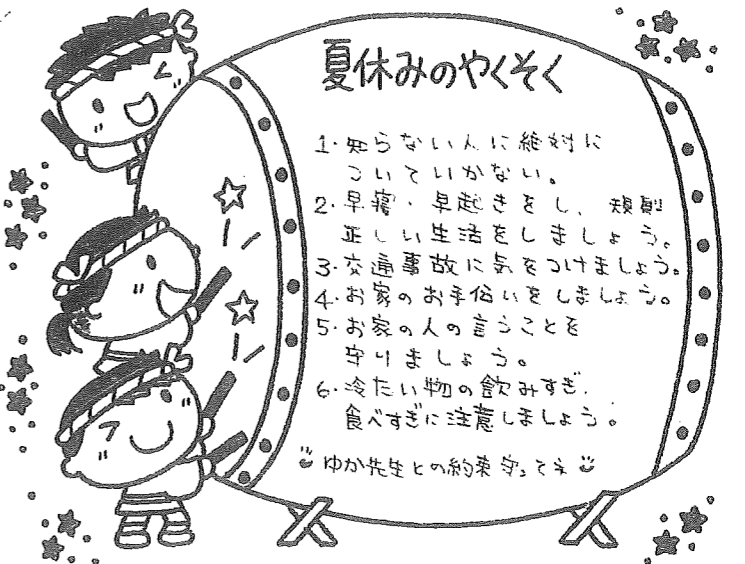 夏休みのやくそく
1.知らない人に絶対に
ついていかない。
2.早寝・早起きをし、規則
正しい生活をしましょう。
3.交通事故に気をつけましょう。
4.お家のお手伝いをしましょう。
5.お家の人の言うことを
守りましょう。
6.冷たい物の飲みすぎ、
食べすぎに注意しましょう。
ゆか先生との約束守ってネ